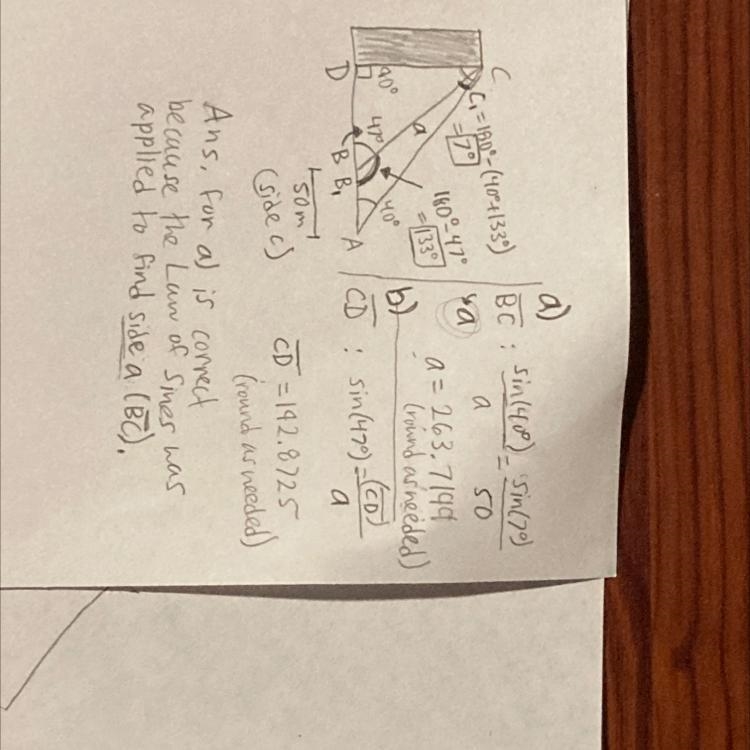 D
C
90°
47°
a
C₁ = 180° - (40° + 133°)
= 7°
B B₁
40°
A
180° - 47°
= 133°
50m
(side c)
a)
BC : sin(40°) = sin(7°)
a 50
a
a = 263.7199
(round as needed)
b)
CD : sin(47°) = (CD)
a
CD = 192.8725
(round as needed)
Ans. for a) is correct
because the Law of Sines was
applied to find side a (BC).